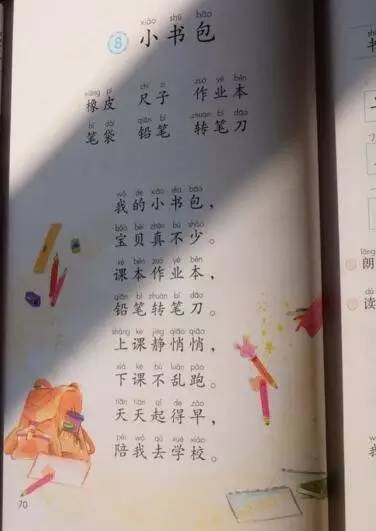 xiǎo shū bāo
8 小书包
xiàng pí chǐ zi zuò yè běn
橡皮 尺子 作业本
bǐ dài qiān bǐ zhuàn bǐ dāo
笔袋 铅笔 转笔刀
wǒ de xiǎo shū bāo
我的小书包，
bǎo bèi zhēn bù shǎo
宝贝真不少。
kè běn zuò yè běn
课本作业本，
qiān bǐ zhuàn bǐ dāo
铅笔转笔刀。
shàng kè jìng qiāo qiāo
上课静悄悄，
xià kè bú luàn pǎo
下课不乱跑。
tiān tiān qǐ de zǎo
天天起得早，
péi wǒ qù xué xiào
陪我去学校。
70
朗
dú
读